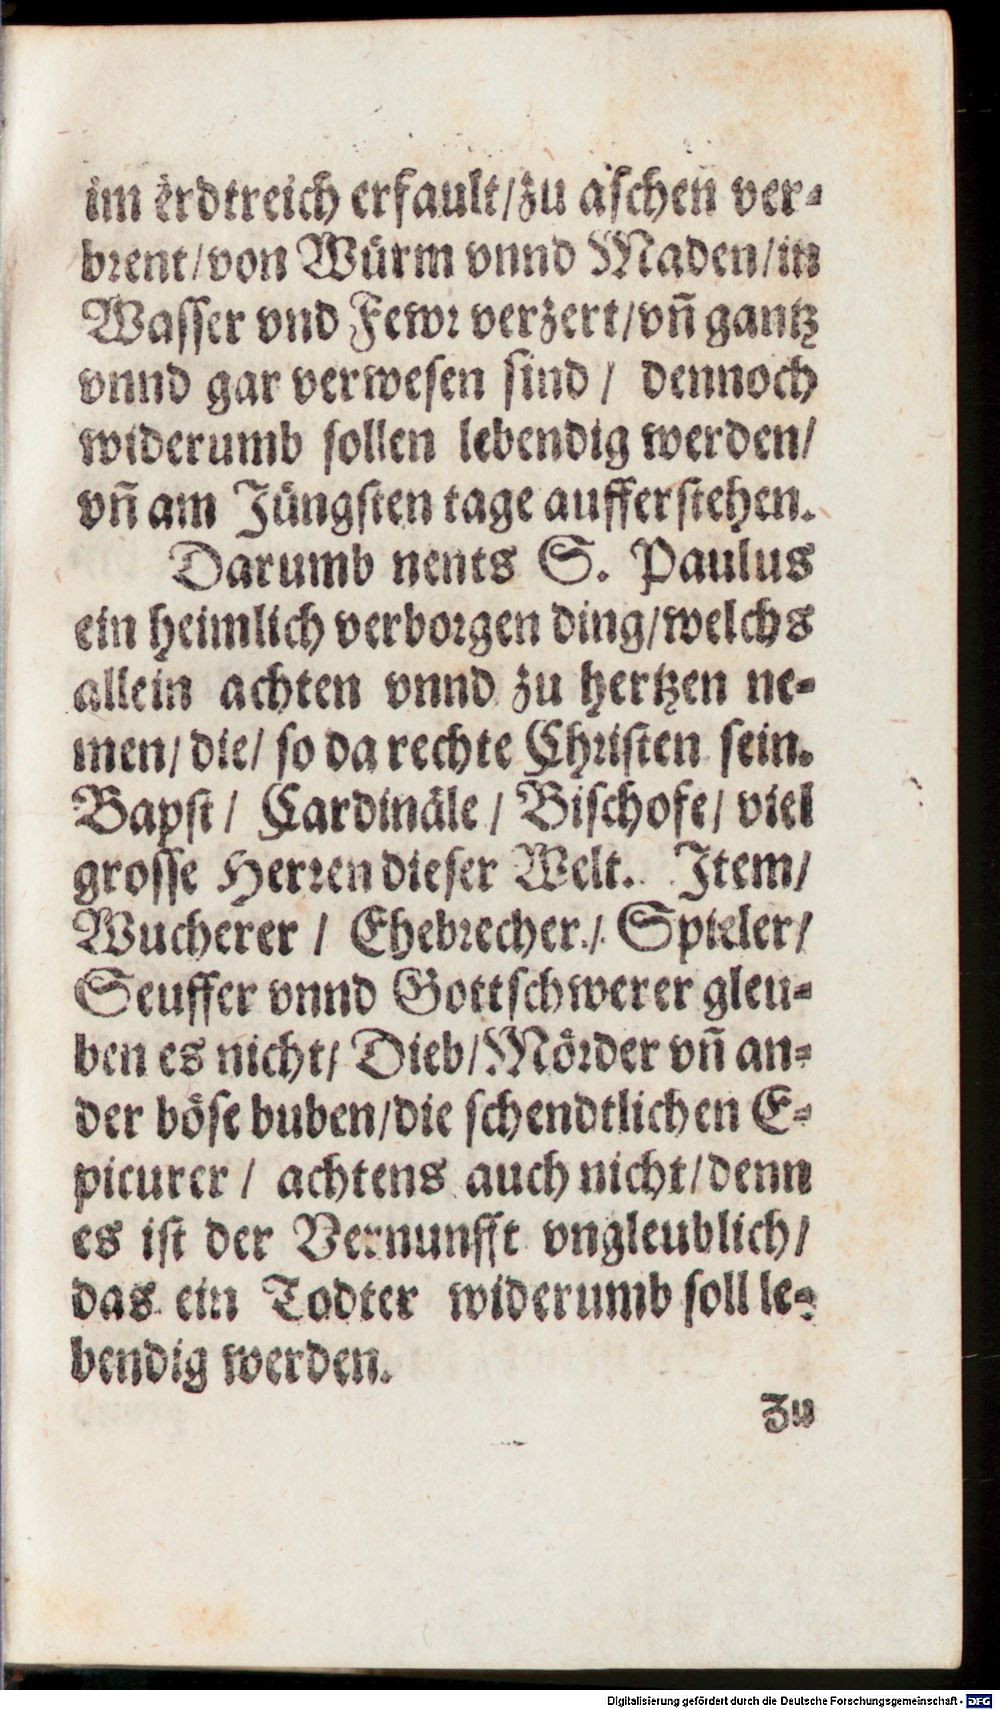 im erdtreich erfault/zu aſchen ver⸗
brent/von Würm vnnd Maden/in
Waſſer vnd Fewꝛ verzert/vñ gantz
vnnd gar verweſen ſind/ dennoch
widerumb ſollen lebendig werden/
vñ am Jüngſten tage aufferſtehen.
Darumb nents S. Paulus
ein heimlich verboꝛgen ding/welchs
allein achten vnnd zu hertzen ne⸗
men/ die/ ſo da rechte Chꝛiſten ſein.
Bapſt/ Cardinäle/ Biſchofe/ viel
groſſe Herꝛen dieſer Welt. Item/
Wucherer/ Ehebꝛecher/ Spieler/
Seuffer vnnd Gottſchwerer gleu⸗
ben es nicht/ Dieb/Möꝛder vñ an⸗
der böſe buben/die ſchendtlichen E⸗
picurer/ achtens auch nicht/denn
es iſt der Vernunfft vngleublich/
das ein Todter widerumb ſoll le⸗
bendig werden.
Zu
Digitalisierung gefördert durch die Deutsche Forschungsgemeinschaft - DFG